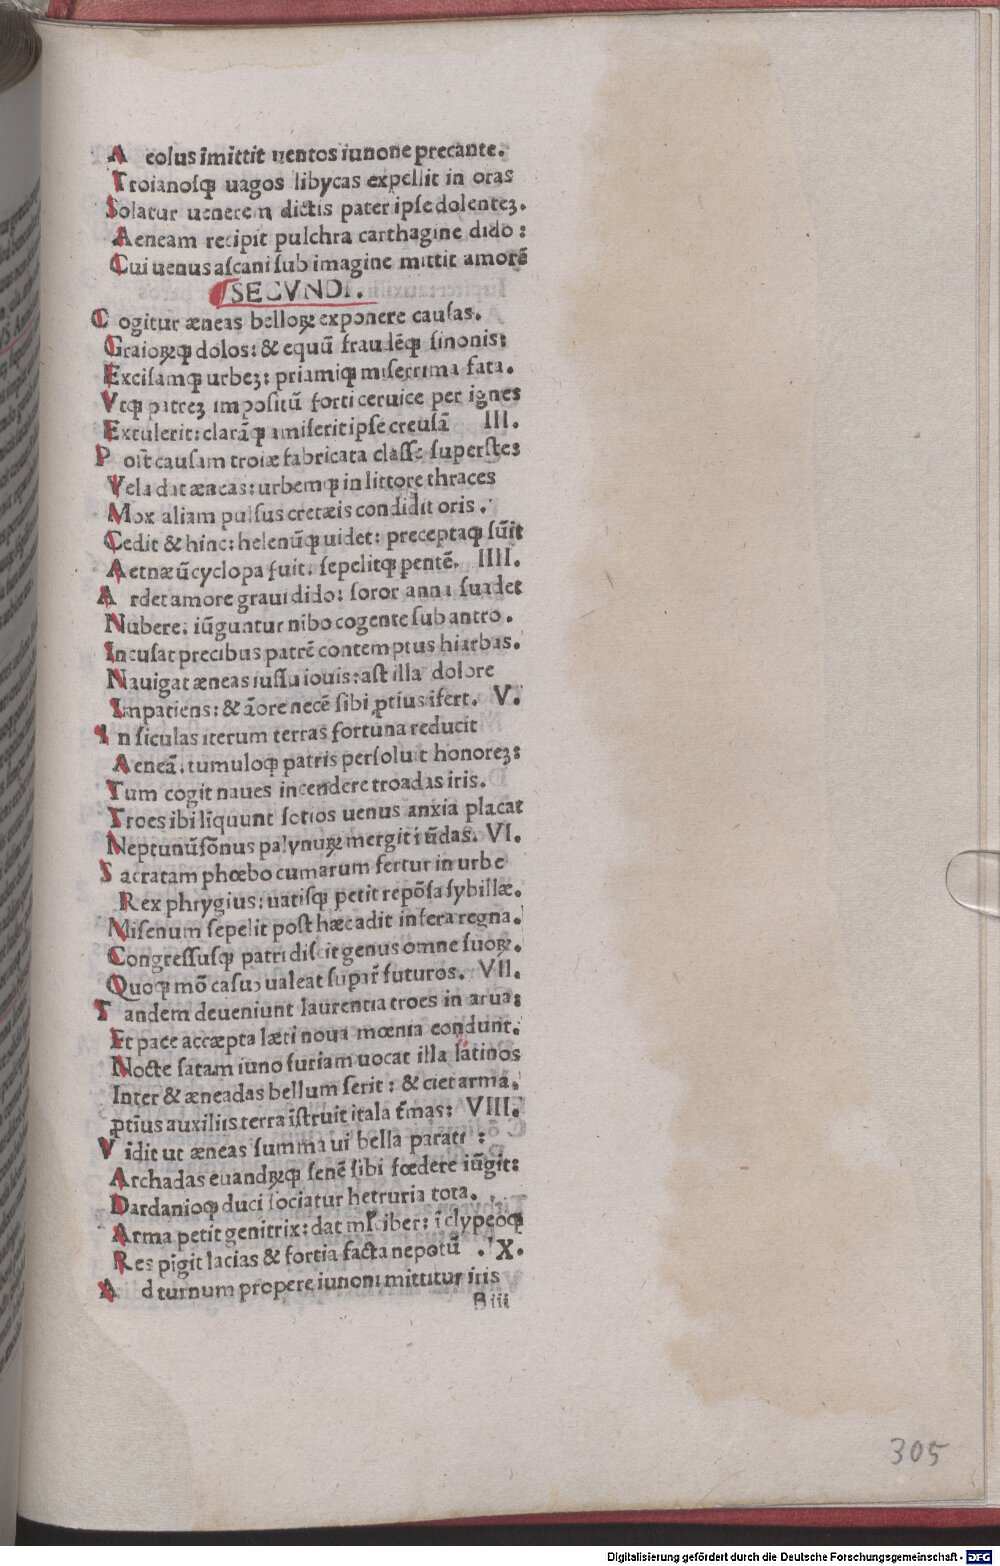 A eolus īmittit uentos iunone precante.
Troianosqꝫ uagos libycas expellit in oras
Solatur uenerem dictis pater ipse dolenteꝫ.
Aeneam recipit pulchra carthagine dido:
Cui uenus ascani sub imagine mittit amorē
SECVNDI.
C ogitur æneas belloꝝ exponere causas.
Graioꝝqꝫ dolos: & equū fraudēqꝫ sinonis:
Excisamqꝫ urbeꝫ: priamiqꝫ miserrima fata.
Vtqꝫ patreꝫ impositū forti ceruice per ignes
Extulerit: clarāqꝫ amiserit ipse creusā III.
P ost causam troiæ fabricata classe superstes
Vela dat æneas: urbemqꝫ in littore thraces
Mox aliam pulsus cretæis condidit oris.
Cedit & hinc: helenūqꝫ uidet: preceptaqꝫ sūit
Aetnæ ū cyclopa fuit. sepelitqꝫ pentē. IIII.
A rdet amore graui dido: soror anna suadet
Nubere: iūguntur nibo cogente sub antro.
Incusat precibus patrē contemptus hiarbas.
Nauigat æneas iussu iouis: ast illa dolore
Impatiens: & āore necē sibi ꝓtius īfert. V.
I n siculas iterum terras fortuna reducit
Aeneā. tumuloqꝫ patris persoluit honoreꝫ:
Tum cogit naues incendere troadas iris.
Troes ibi liquunt sotios uenus anxia placat
Neptunū sōnus palynuꝝ mergit ī ūdas. VI.
S acratam phœbo cumarum fertur in urbe
Rex phrygius: uatisqꝫ petit repōsa sybillæ.
Misenum sepelit post hæc adit infera regna.
Congressusqꝫ patri discit genus omne suoꝝ.
Quoqꝫ mō casus ualeat supar̄ futuros. VII.
T andem deueniunt laurentia troes in arua:
Et pace accæpta læti noua mœnia condunt.
Nocte satam iuno furiam uocat illa latinos
Inter & æneadas bellum serit: & ciet arma.
ꝓtius auxiliis terra īstruit itala f̄mas: VIII.
V idit ut æneas summa ui bella parari:
Archadas euandꝝqꝫ senē sibi fœdere iūgit:
Dardanioqꝫ duci sociatur hetruria tota.
Arma petit genitrix: dat mꝉciber: ī clypeoqꝫ
Res pigit lacias & fortia facta nepotū . X.
A d turnum propere iunoni mittitur iris
Biii
305
Digitalisierung gefördert durch die Deutsche Forschungsgemeinschaft - DFG